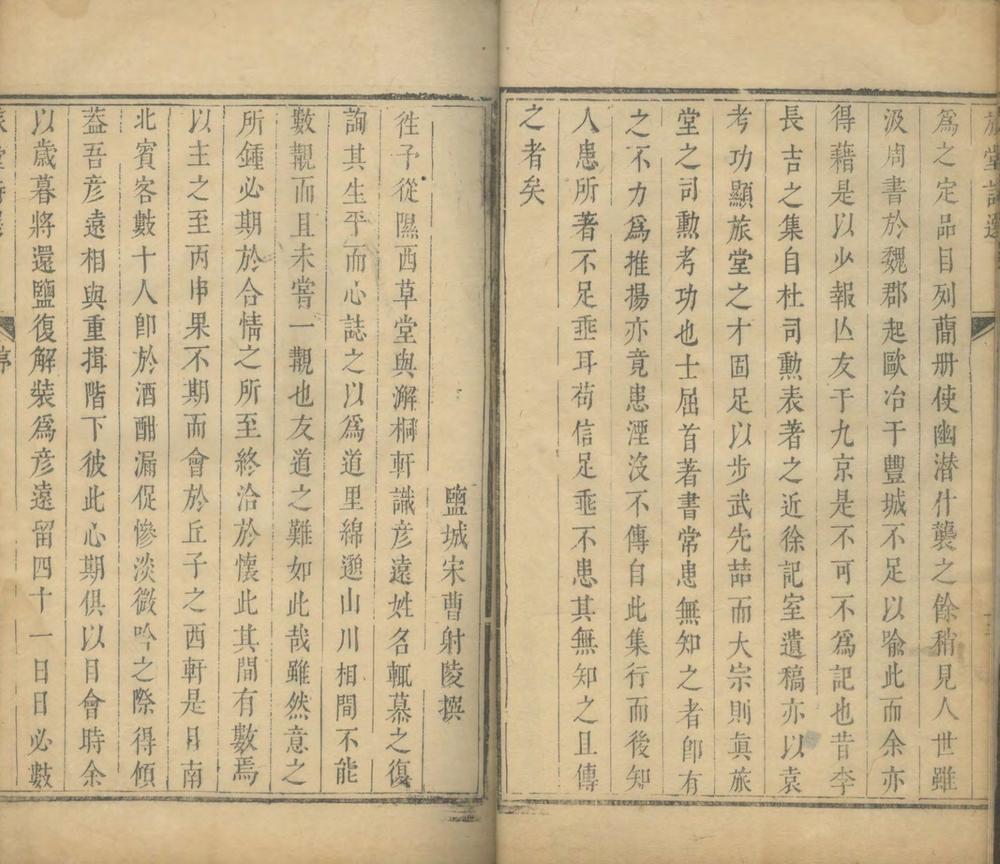 旅堂詩選
為之定品目列蕳册使幽潜什襲之餘稍見人世雖
汲周書於魏郡起歐冶干豐城不足以喻此而余亦
得藉是以少報亾友于九京是不可不為記也昔李
長吉之集自杜司勲表著之近徐記室遺稿亦以袁
考功顯旅堂之才固足以步武先喆而大宗則真旅
堂之司勲考功也士屈首著書常患無知之者卽有
之不力為推揚亦竟患湮沒不傳自此集行而後知
人患所著不足埀耳苟信足埀不患其無知之且傳
之者矣
鹽城宋曹射陵撰
徃予從隰西草堂與澥桐軒識彦遠姓名輒慕之復
詢其生平而心誌之以為道里綿邈山川相間不能
數覯而且未嘗一觀也友道之難如此哉雖然意之
所鍾必期於合情之所至終洽於懷此其間有數焉
以主之至丙申果不期而會於丘子之西軒是日南
北賓客數十人卽於酒酣漏促慘淡微吟之際得傾
葢吾彦遠相與重揖階下彼此心期俱以目會時余
以歲暮將還鹽復解裝為彦遠留四十一日日必數
旅堂詩選 序